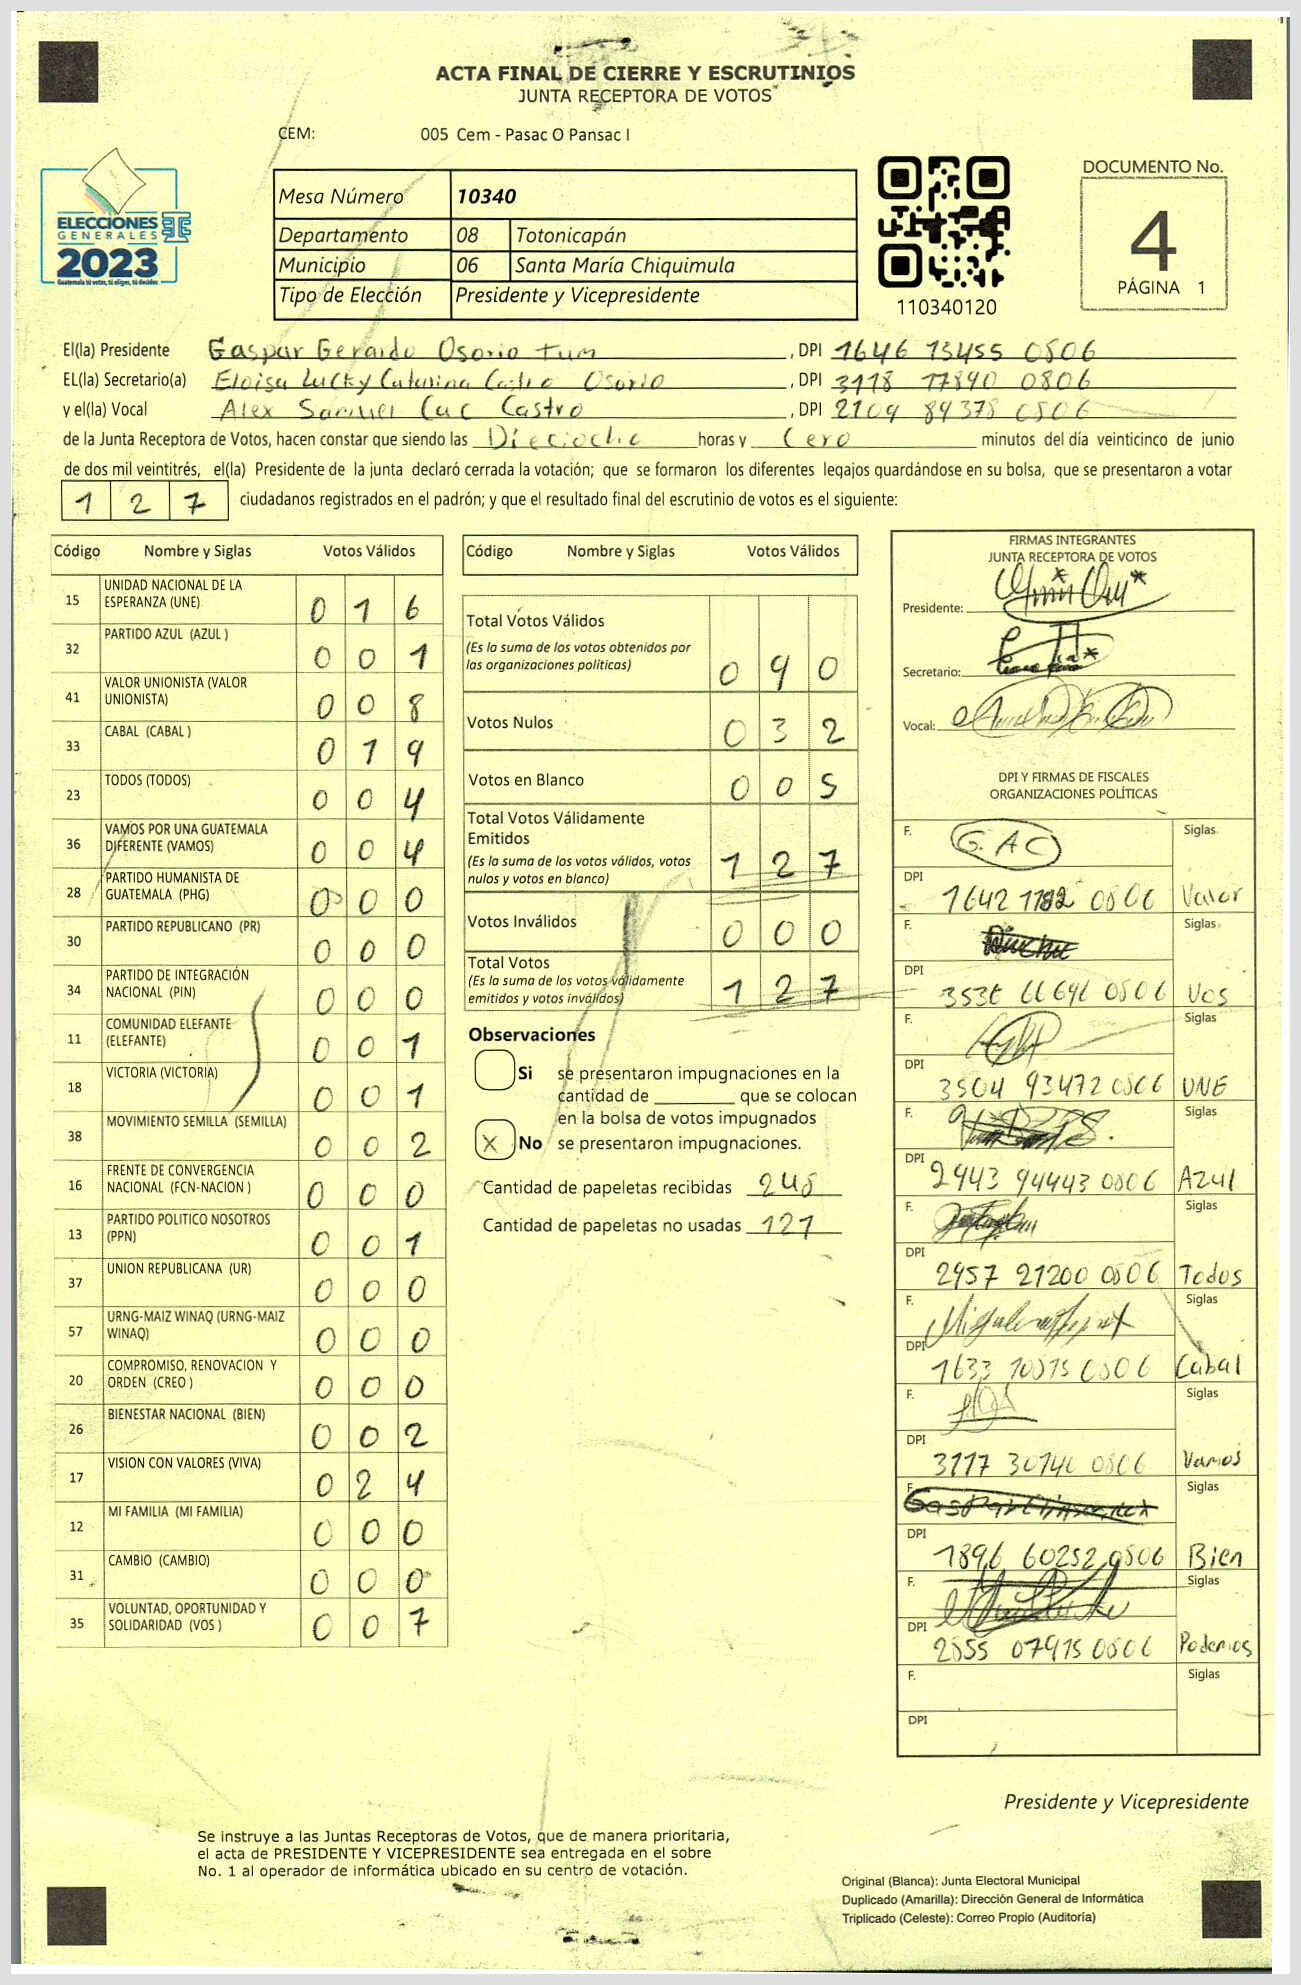 ACTA FINAL DE CIERRE Y ESCRUTINIOS
JUNTA RECEPTORA DE VOTOS
CEM: 005 Cem - Pasac O Pansac I
ELECCIONES
GENERALES
2023
Guatemala tú votas, tú eliges, tú decides
Mesa Número 10340
Departamento 08 Totonicapán
Municipio 06 Santa María Chiquimula
Tipo de Elección Presidente y Vicepresidente
110340120
DOCUMENTO No.
4
PÁGINA 1
El(la) Presidente Gaspar Gerardo Osorio Tum, DPI 1646 13455 0806
EL(la) Secretario(a) Eloisa Lucky Catarina Castro Osorio, DPI 3118 17840 0806
y el(la) Vocal Alex Samuel Cac Castro, DPI 2109 84378 0806
de la Junta Receptora de Votos, hacen constar que siendo las Dieciocho horas y Cero minutos del día veinticinco de junio
de dos mil veintitrés, el(la) Presidente de la junta declaró cerrada la votación; que se formaron los diferentes legajos guardándose en su bolsa, que se presentaron a votar
127 ciudadanos registrados en el padrón; y que el resultado final del escrutinio de votos es el siguiente:
Código Nombre y Siglas Votos Válidos
15 UNIDAD NACIONAL DE LA
ESPERANZA (UNE) 0 1 6
32 PARTIDO AZUL (AZUL ) 0 0 1
41 VALOR UNIONISTA (VALOR
UNIONISTA) 0 0 8
33 CABAL (CABAL ) 0 1 9
23 TODOS (TODOS) 0 0 4
36 VAMOS POR UNA GUATEMALA
DIFERENTE (VAMOS) 0 0 4
28 PARTIDO HUMANISTA DE
GUATEMALA (PHG) 0 0 0
30 PARTIDO REPUBLICANO (PR) 0 0 0
34 PARTIDO DE INTEGRACIÓN
NACIONAL (PIN) 0 0 0
11 COMUNIDAD ELEFANTE
(ELEFANTE) 0 0 1
18 VICTORIA (VICTORIA) 0 0 1
38 MOVIMIENTO SEMILLA (SEMILLA) 0 0 2
16 FRENTE DE CONVERGENCIA
NACIONAL (FCN-NACION ) 0 0 0
13 PARTIDO POLITICO NOSOTROS
(PPN) 0 0 1
37 UNION REPUBLICANA (UR) 0 0 0
57 URNG-MAIZ WINAQ (URNG-MAIZ
WINAQ) 0 0 0
20 COMPROMISO, RENOVACION Y
ORDEN (CREO ) 0 0 0
26 BIENESTAR NACIONAL (BIEN) 0 0 2
17 VISION CON VALORES (VIVA) 0 2 4
12 MI FAMILIA (MI FAMILIA) 0 0 0
31 CAMBIO (CAMBIO) 0 0 0
35 VOLUNTAD, OPORTUNIDAD Y
SOLIDARIDAD (VOS) 0 0 7
Código Nombre y Siglas Votos Válidos
Total Votos Válidos
(Es la suma de los votos obtenidos por
las organizaciones políticas) 0 9 0
Votos Nulos 0 3 2
Votos en Blanco 0 0 5
Total Votos Válidamente
Emitidos
(Es la suma de los votos válidos, votos
nulos y votos en blanco) 1 2 7
Votos Inválidos 0 0 0
Total Votos
(Es la suma de los votos válidamente
emitidos y votos inválidos) 1 2 7
Observaciones
Si se presentaron impugnaciones en la
cantidad de ________ que se colocan
en la bolsa de votos impugnados
X No se presentaron impugnaciones.
Cantidad de papeletas recibidas 248
Cantidad de papeletas no usadas 121
FIRMAS INTEGRANTES
JUNTA RECEPTORA DE VOTOS
Presidente:
Secretario:
Vocal:
DPI Y FIRMAS DE FISCALES
ORGANIZACIONES POLÍTICAS
F. G. AC Siglas
DPI 1642 0806 Valor
F. Siglas
DPI 0806 Vos
F. Siglas
DPI 3504 93472 0806 UNE
F. Siglas
DPI 2443 94443 0806 Azul
F. Siglas
DPI 2957 21200 0806 Todos
F. Siglas
DPI 1633 0806 Cabal
F. Siglas
DPI 0806 Vamos
F. Siglas
DPI 1896 60252 0806 Bien
F. Siglas
DPI 2855 07915 0806 Podemos
F. Siglas
DPI
Presidente y Vicepresidente
Se instruye a las Juntas Receptoras de Votos, que de manera prioritaria,
el acta de PRESIDENTE Y VICEPRESIDENTE sea entregada en el sobre
No. 1 al operador de informática ubicado en su centro de votación.
Original (Blanca): Junta Electoral Municipal
Duplicado (Amarilla): Dirección General de Informática
Triplicado (Celeste): Correo Propio (Auditoría)